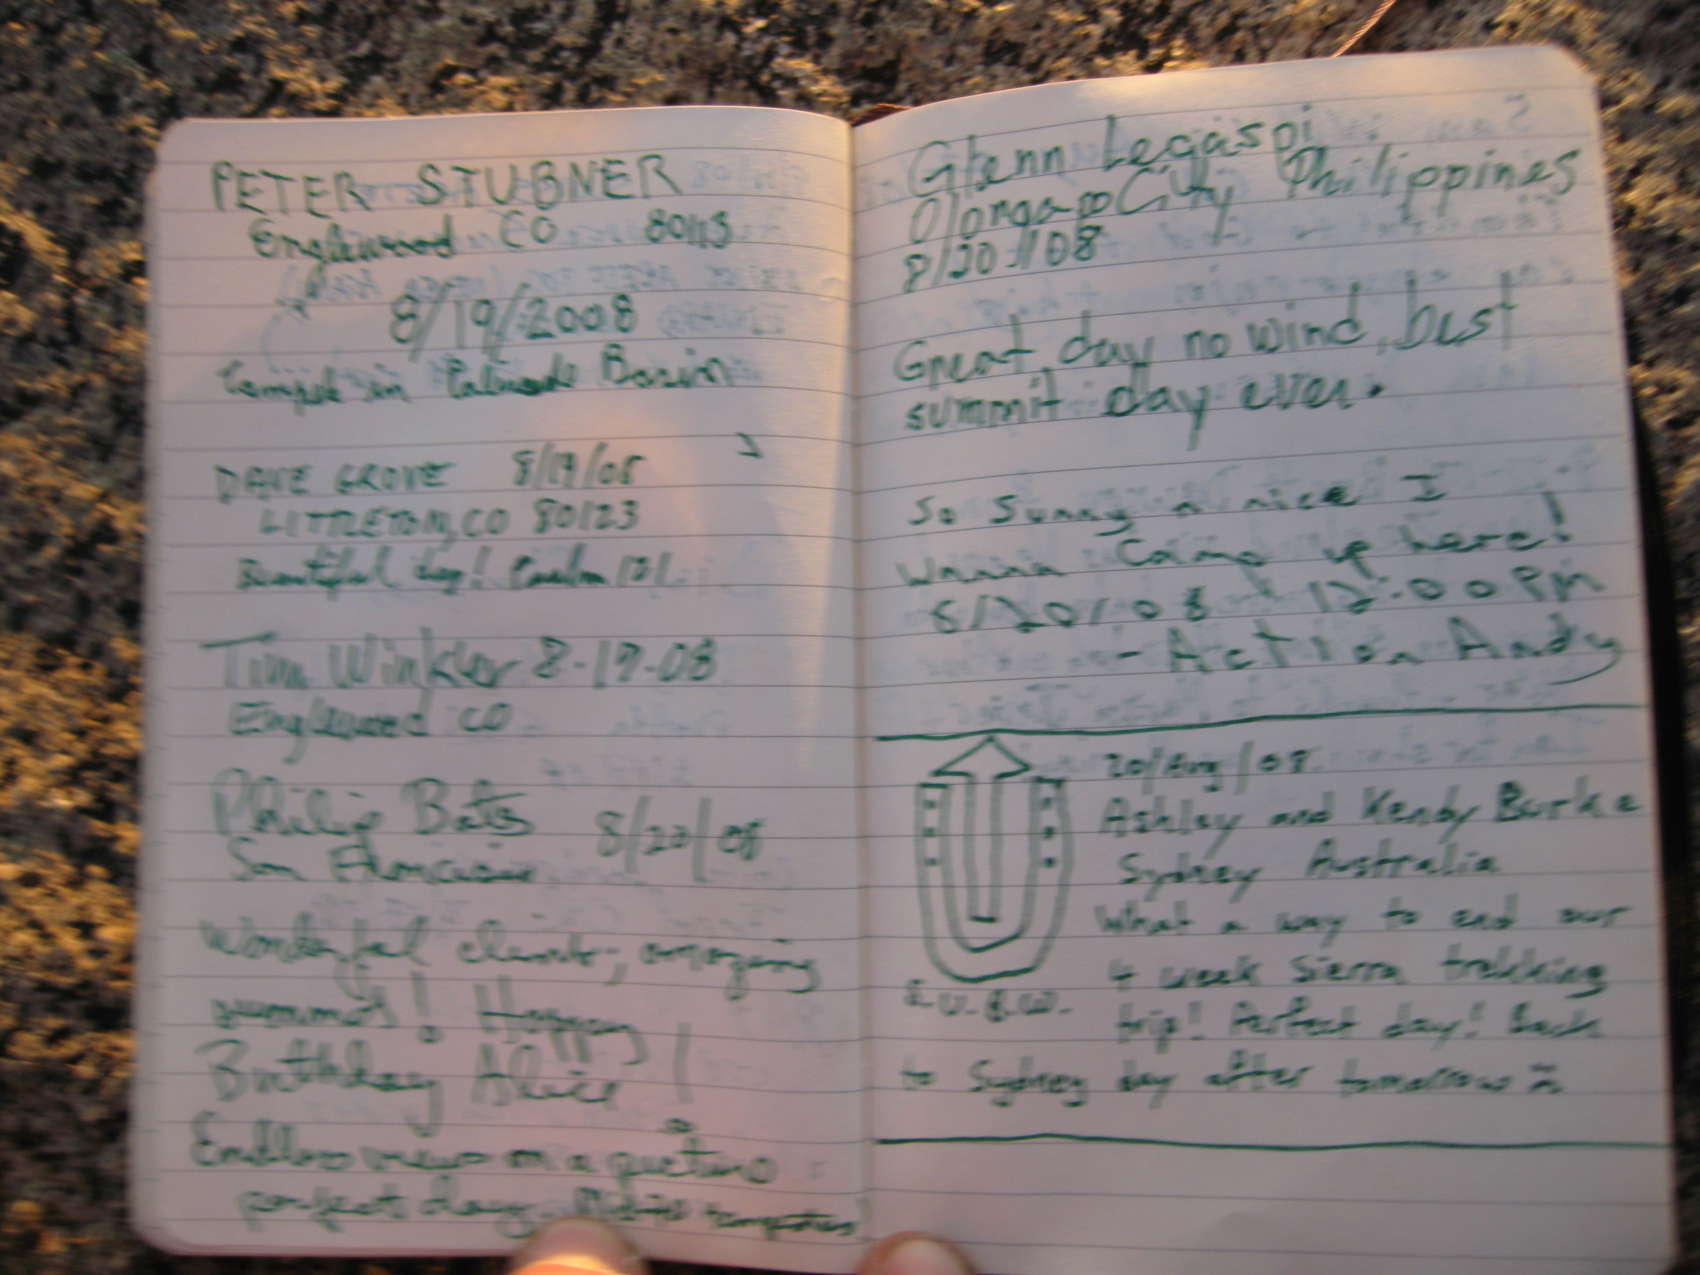 PETER STUBNER
Englewood CO 80113
8/19/2008
Camped in Palisade Basin
DAVE GROVE 8/19/08
LITTLETON, CO 80123
Beautiful day!
Tim Winkler 8-19-08
Englewood CO
Philip Bates 8/20/08
San Francisco
Wonderful climb, amazing
summit! Happy
Birthday Alice!
Endless views on a
perfect day
Glenn Legaspi
Olongapo City Philippines
8/20/08
Great day no wind, best
summit day ever.
So Sunny n nice I
wanna camp up here!
8/20/08 12:00 PM
- Action Andy
20/Aug/08
Ashley and Kendy Burke
Sydney Australia
What a way to end our
4 week Sierra trekking
trip! Perfect day! Back
to Sydney day after tomorrow